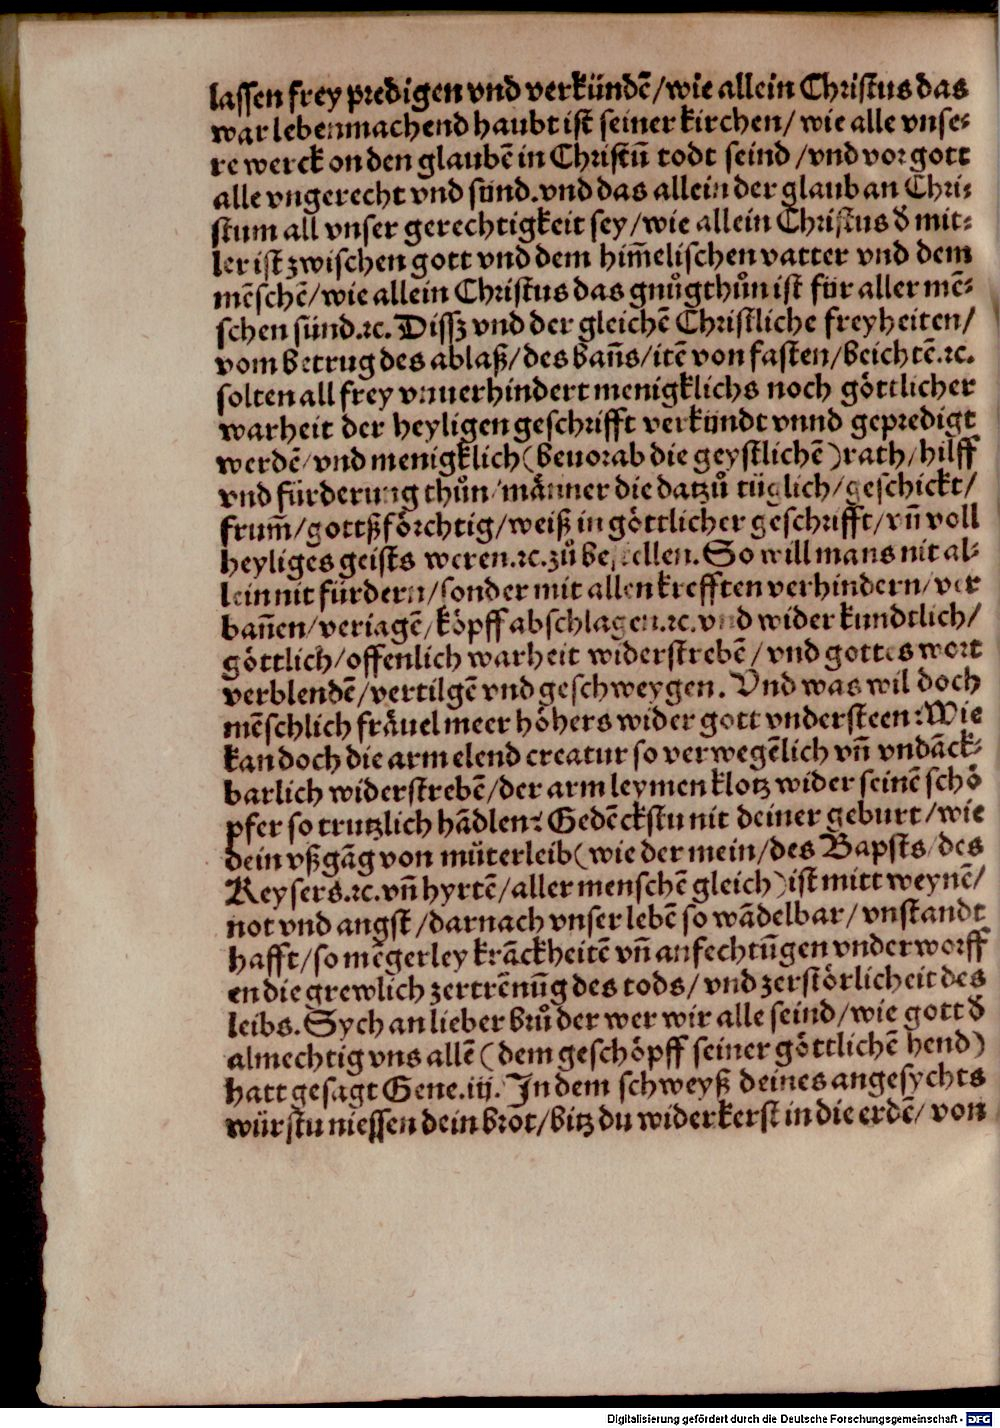 lassen frey predigen vnd verkündē/wie allein Christus das
war lebenmachend haubt ist seiner kirchen/ wie alle vnse⸗
re werck on den glaubē in Christū todt seind /vnd vor gott
alle vngerecht vnd sünd.vnd das allein der glaub an Chri⸗
stum all vnser gerechtigkeit sey/wie allein Christus đ mit⸗
ler ist zwischen gott vnd dem him̃elischen vatter vnd dem
mēschē/wie allein Christus das gnůgthůn ist für aller mē⸗
schen sünd.ꝛc. Dissz vnd der gleichē Christliche freyheiten/
vom betrug des ablaß/des bañs/itē von fasten/beichtē.ꝛc.
solten all frey vnuerhindert menigklichs noch göttlicher
warheit der heyligen geschrifft verkündt vnnd gepredigt
werdē/vnd menigklich(beuorab die geystlichē)rath/hilff
vnd fürderung thůn/männer die datzů tüglich/geschickt/
frum̃/gottßförchtig/weiß in göttlicher geschrifft/vñ voll
heyliges geists weren.ꝛc.zů bestellen. So will mans nit al⸗
lein nit fürdern/sonder mit allen krefften verhindern/ver
bañen/veriagē/köpff abschlagen.ꝛc.vnd wider kundtlich/
göttlich/offenlich warheit widerstrebē/vnd gottes wort
verblendē/vertilgē vnd geschweygen. Vnd was wil doch
mēschlich fräuel meer höhers wider gott vndersteen? Wie
kan doch die arm elend creatur so verwegēlich vñ vndāck⸗
barlich widerstrebē/der arm leymen klotz wider seinē schö
pfer so trutzlich hādlen? Gedēckstu nit deiner geburt/wie
dein vßgāg von můterleib(wie der mein/des Bapsts/des
Keysers.ꝛc.vñ hyrtē/aller menschē gleich)ist mitt weynē/
not vnd angst/darnach vnser lebē so wādelbar/vnstandt
hafft/so mēgerley krāckheitē vñ anfechtūgen vnderworff
en die grewlich zertrēnūg des tods/vnd zerstörlicheit des
leibs. Sych an lieber brůder wer wir alle seind/wie gott đ
almechtig vns allē (dem geschöpff seiner göttlichē hend)
hatt gesagt Gene.iij. In dem schweyß deines angesychts
würstu niessen dein brot/bitz du widerkerst in die erdē/von
Digitalisierung gefördert durch die Deutsche Forschungsgemeinschaft - DFG